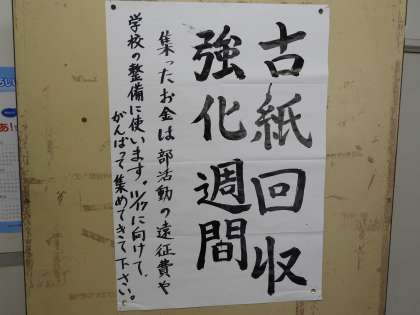 古紙回収
強化週間
集ったお金は部活動の遠征費や
学校の整備に使います。ツイクに向けて、
がんばって集めてきて下さい。